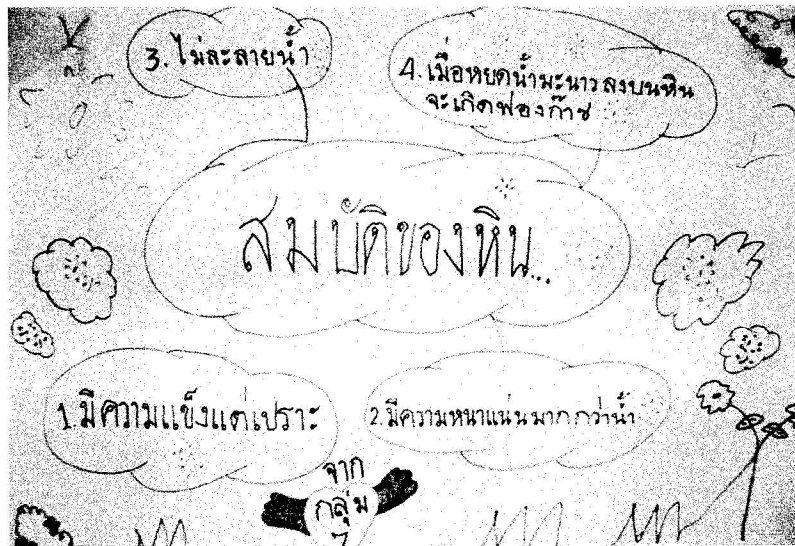 3. ไม่ละลายน้ำ
4. เมื่อหยดน้ำมะนาวลงบนหิน
จะเกิดฟองก๊าซ
สมบัติของหิน...
1. มีความแข็งแต่เปราะ
2. มีความหนาแน่นมากกว่าน้ำ
จาก
กลุ่ม